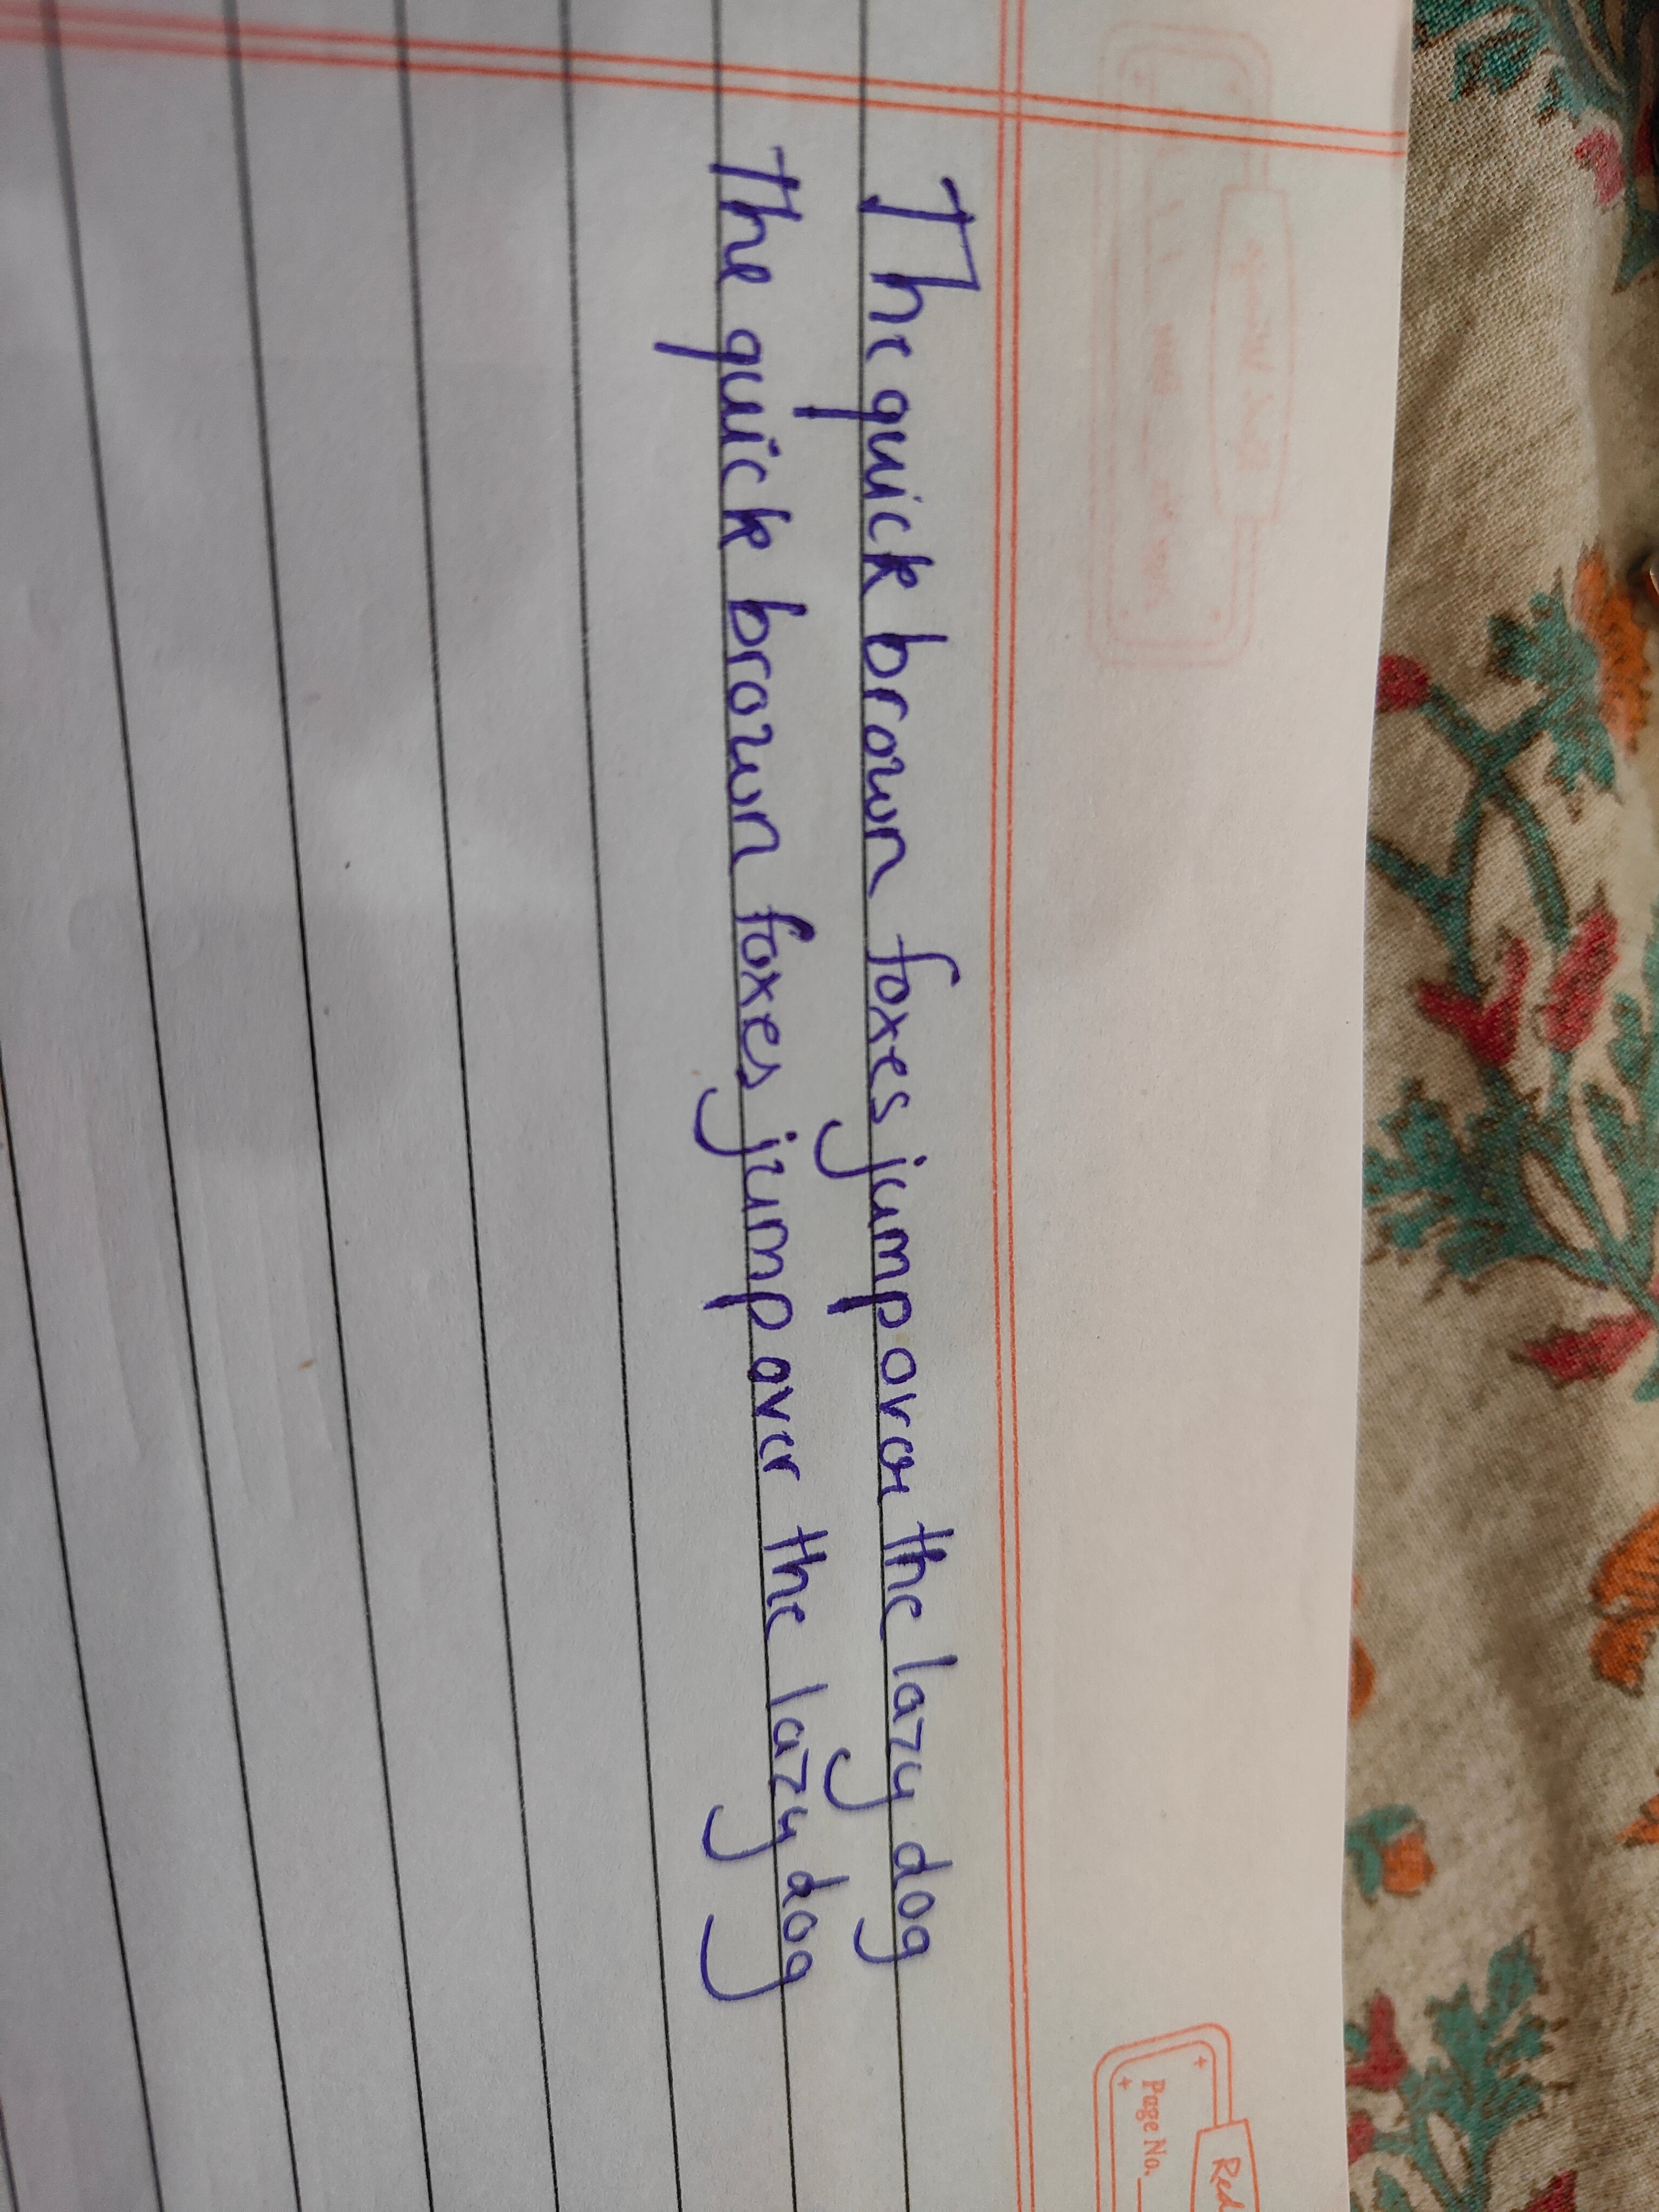 Red
Page No.
The quick brown foxes jump over the lazy dog
The quick brown foxes jump over the lazy dog